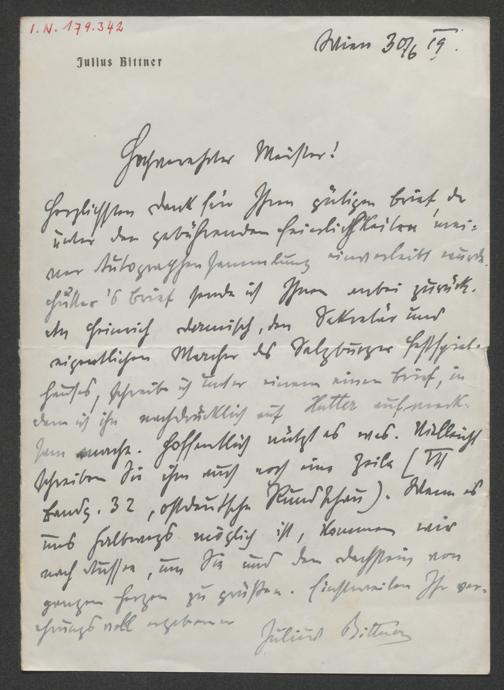 I.N. 179.342
Wien 30/6 19.
Julius Bittner
Hochverehrter Meister!
Herzlichsten Dank für Ihren gütigen Brief, der
unter den gebührenden Feierlichkeiten mei-
ner Autographensammlung einverleibt wurde.
's Brief sende ich Ihnen anbei zurück.
An Heinrich Damisch, den Sekretär und
eigentlichen Macher des Salzburger Festspiel-
hauses, schreibe ich unter einem einen Brief, in
dem ich ihn nachdrücklich auf Hutter aufmerk-
sam mache. Hoffentlich nützt es was. Vielleicht
schreiben Sie ihm auch noch eine Zeile (VII
Bandg. 32, ostdeutsche Rundschau). Wenn es
uns halbwegs möglich ist, kommen wir
nach Aussee, um Sie und den Dachstein von
ganzem Herzen zu grüßen. Einstweilen Ihr ver-
ehrungsvoll ergebener
Julius Bittner